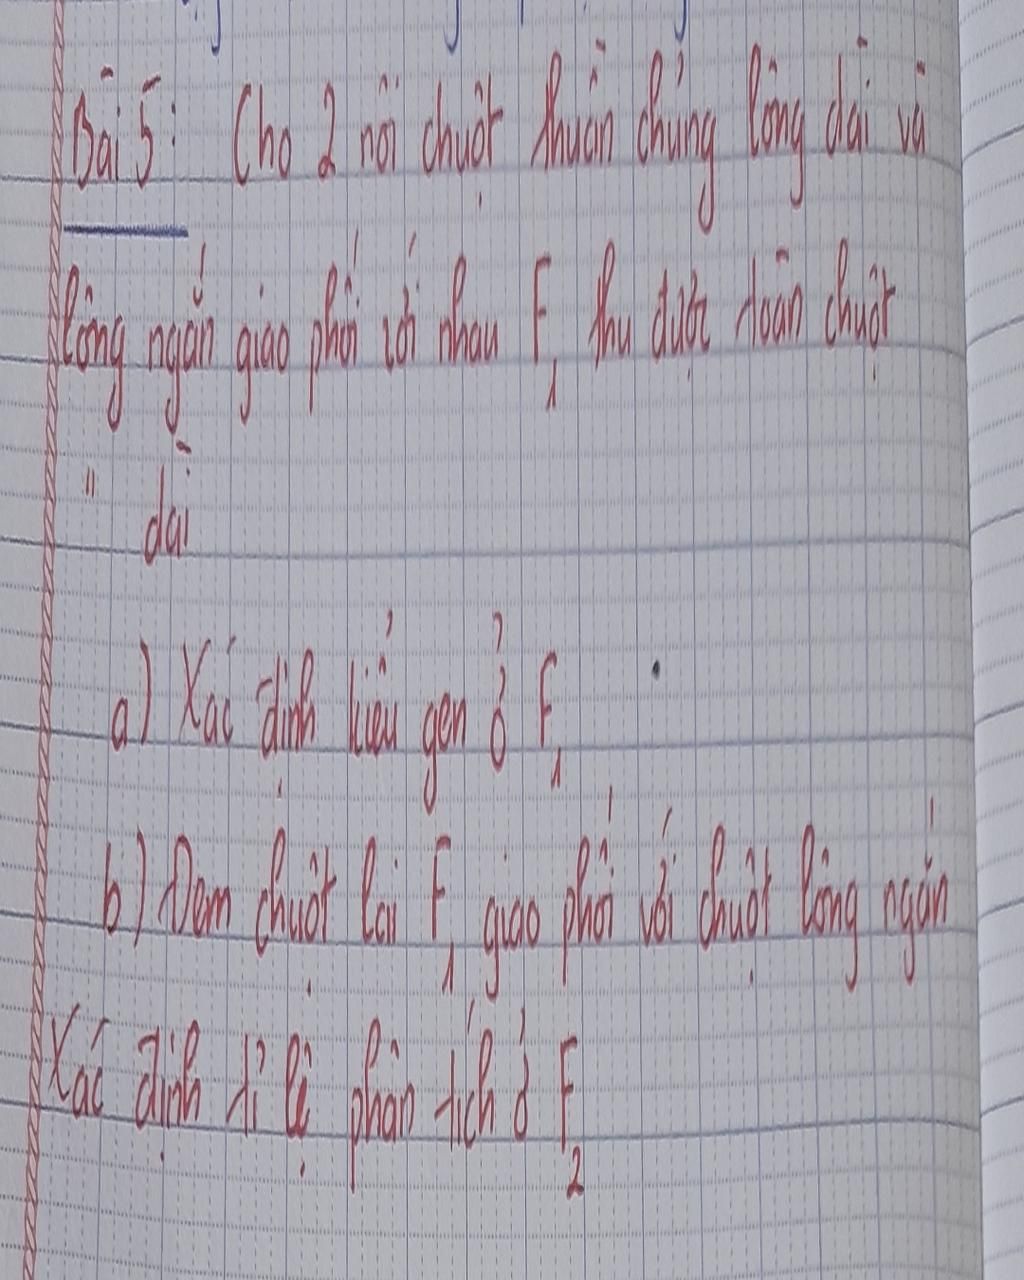 Bài 5: Cho 2 nòi chuột thuần chủng lông dài và
lông ngắn giao phối với nhau F1 thu được toàn chuột
" dài
a) Xác định kiểu gen ở F1
b) Đem chuột lai F1 giao phối với chuột lông ngắn
Xác định tỉ lệ phân tích ở F2